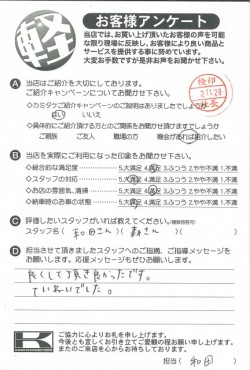 軽
お客様アンケート
当店では、お買い上げ頂いたお客様の声を可能
な限り現場に反映し、お客様により良い商品と
サービスを提供する事に努めています。
大変お手数ですが是非お声をお聞かせ下さい。
A 当店はご紹介を大切にしております。
ご紹介キャンペーンについてお聞かせ下さい。
◇カミタケご紹介キャンペーンのご説明はありましたでしょうか
はい いいえ
◇具体的にご紹介頂ける方とのご関係をお聞かせ頂けますでしょうか
ご親族 ご友人 職場の方 機会があれば紹介したい
B 当店を実際にご利用になった印象をお聞かせ下さい。
◇総合的な満足度 5.大満足 4.満足 3.ふつう 2.やや不満 1.不満
◇スタッフの対応 5.大満足 4.満足 3.ふつう 2.やや不満 1.不満
◇お店の雰囲気、清掃 5.大満足 4.満足 3.ふつう 2.やや不満 1.不満
◇納車時のお車の状態 5.大満足 4.満足 3.ふつう 2.やや不満 1.不満
C 評価したいスタッフがいれば教えてください。(複数回答可)
スタッフ名( 和田さん )( 森さん )
D 担当させて頂きましたスタッフへのご指摘、ご指導メッセージを
お願いします。応援メッセージもぜひお願いします。
良くして頂き良かったです。
ていねいでした。
K
ご協力に心よりお礼を申し上げます。
今後とも宜しくお引き立てご愛顧の程お願い申し上げます。
またのご来店を心からお待ちしております。
担当( 和田 )